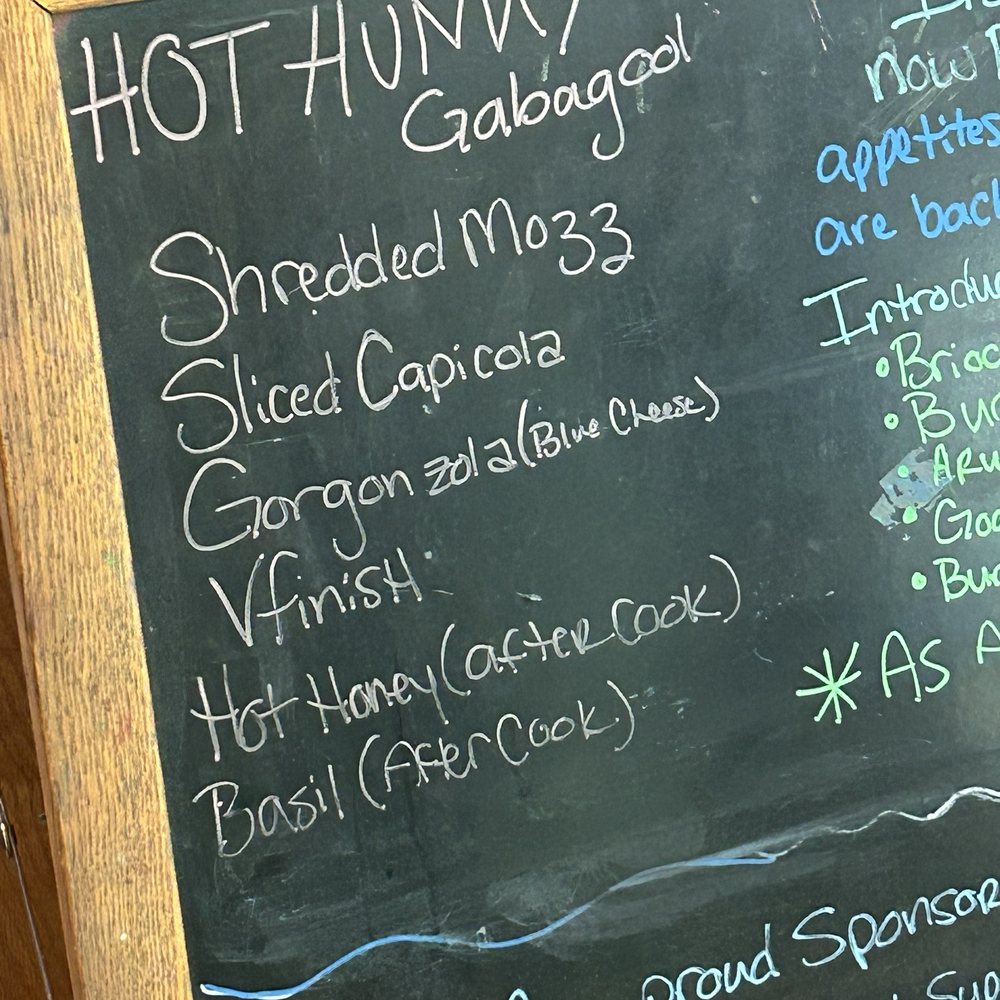 HOT HUNNY
Gabagool
Shredded Mozz
Sliced Capicola
Gorgonzola (Blue Cheese)
Vfinish
Hot Honey (after Cook)
Basil (After Cook)
now
appetites
are back
Introdu
• Brioc
• Bu
• Aru
• Goa
• Bu
* As A
proud Sponsor